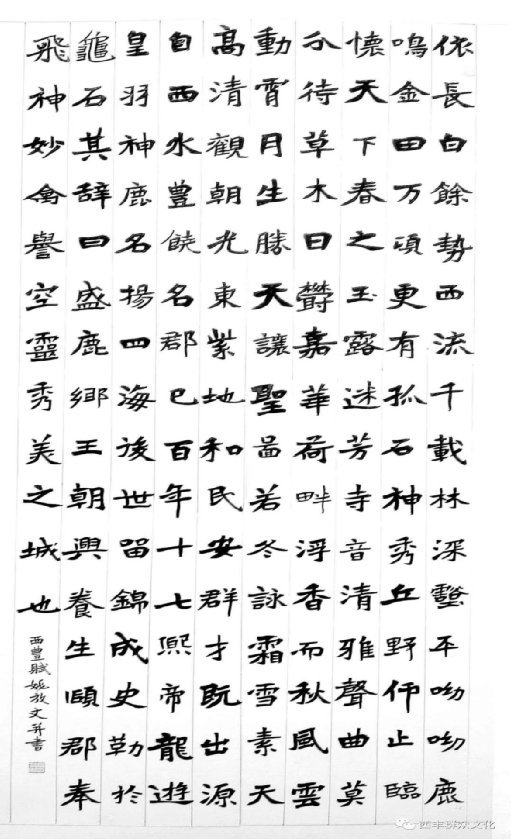 依長白餘勢西流千載林深壑平呦呦鹿
鳴金田万頃更有孤石神秀丘野仰止臨
懷天下春之玉露迷芳寺音清雅聲曲莫
分待草木日欝嘉華荷畔浮香而秋風雲
動霄月生勝天讓聖啚若冬詠霜雪素天
高清觀朝光東紫地和民安群才既出源
自西水豊饒名郡已百年十七熙帝龍遊
皇羽神鹿名揚四海後世留錦成史勒於
龜石其辞曰盛鹿鄉王朝興養生頤郡奉
飛神妙禽譽空靈秀美之城也
西豊賦姬放文并書
西丰群众文化